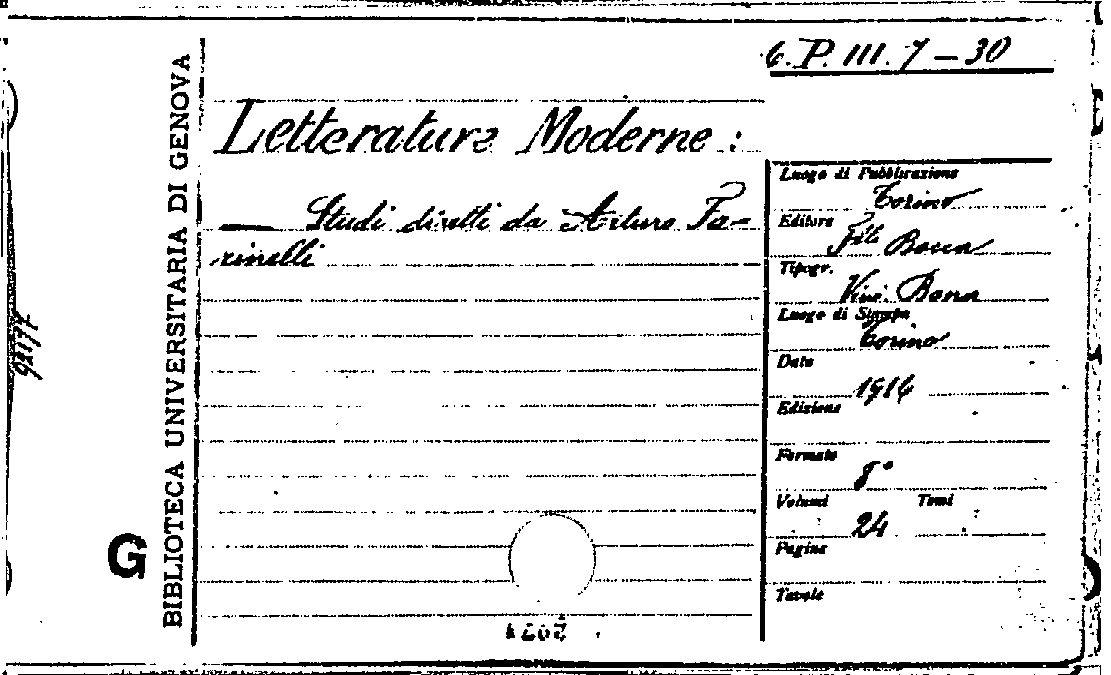 6. P. III. 7 – 30
BIBLIOTECA UNIVERSITARIA DI GENOVA
G
Letterature Moderne :
— Studi diretti da Arturo Fa-
rinelli
Luogo di Pubblicazione
Torino
Editore
F.lli Bocca
Tipogr.
Vinc. Bona
Luogo di Stampa
Torino
Data
1914
Edizione
Formato
8°
Volumi Tomi
24
Pagine
Tavole